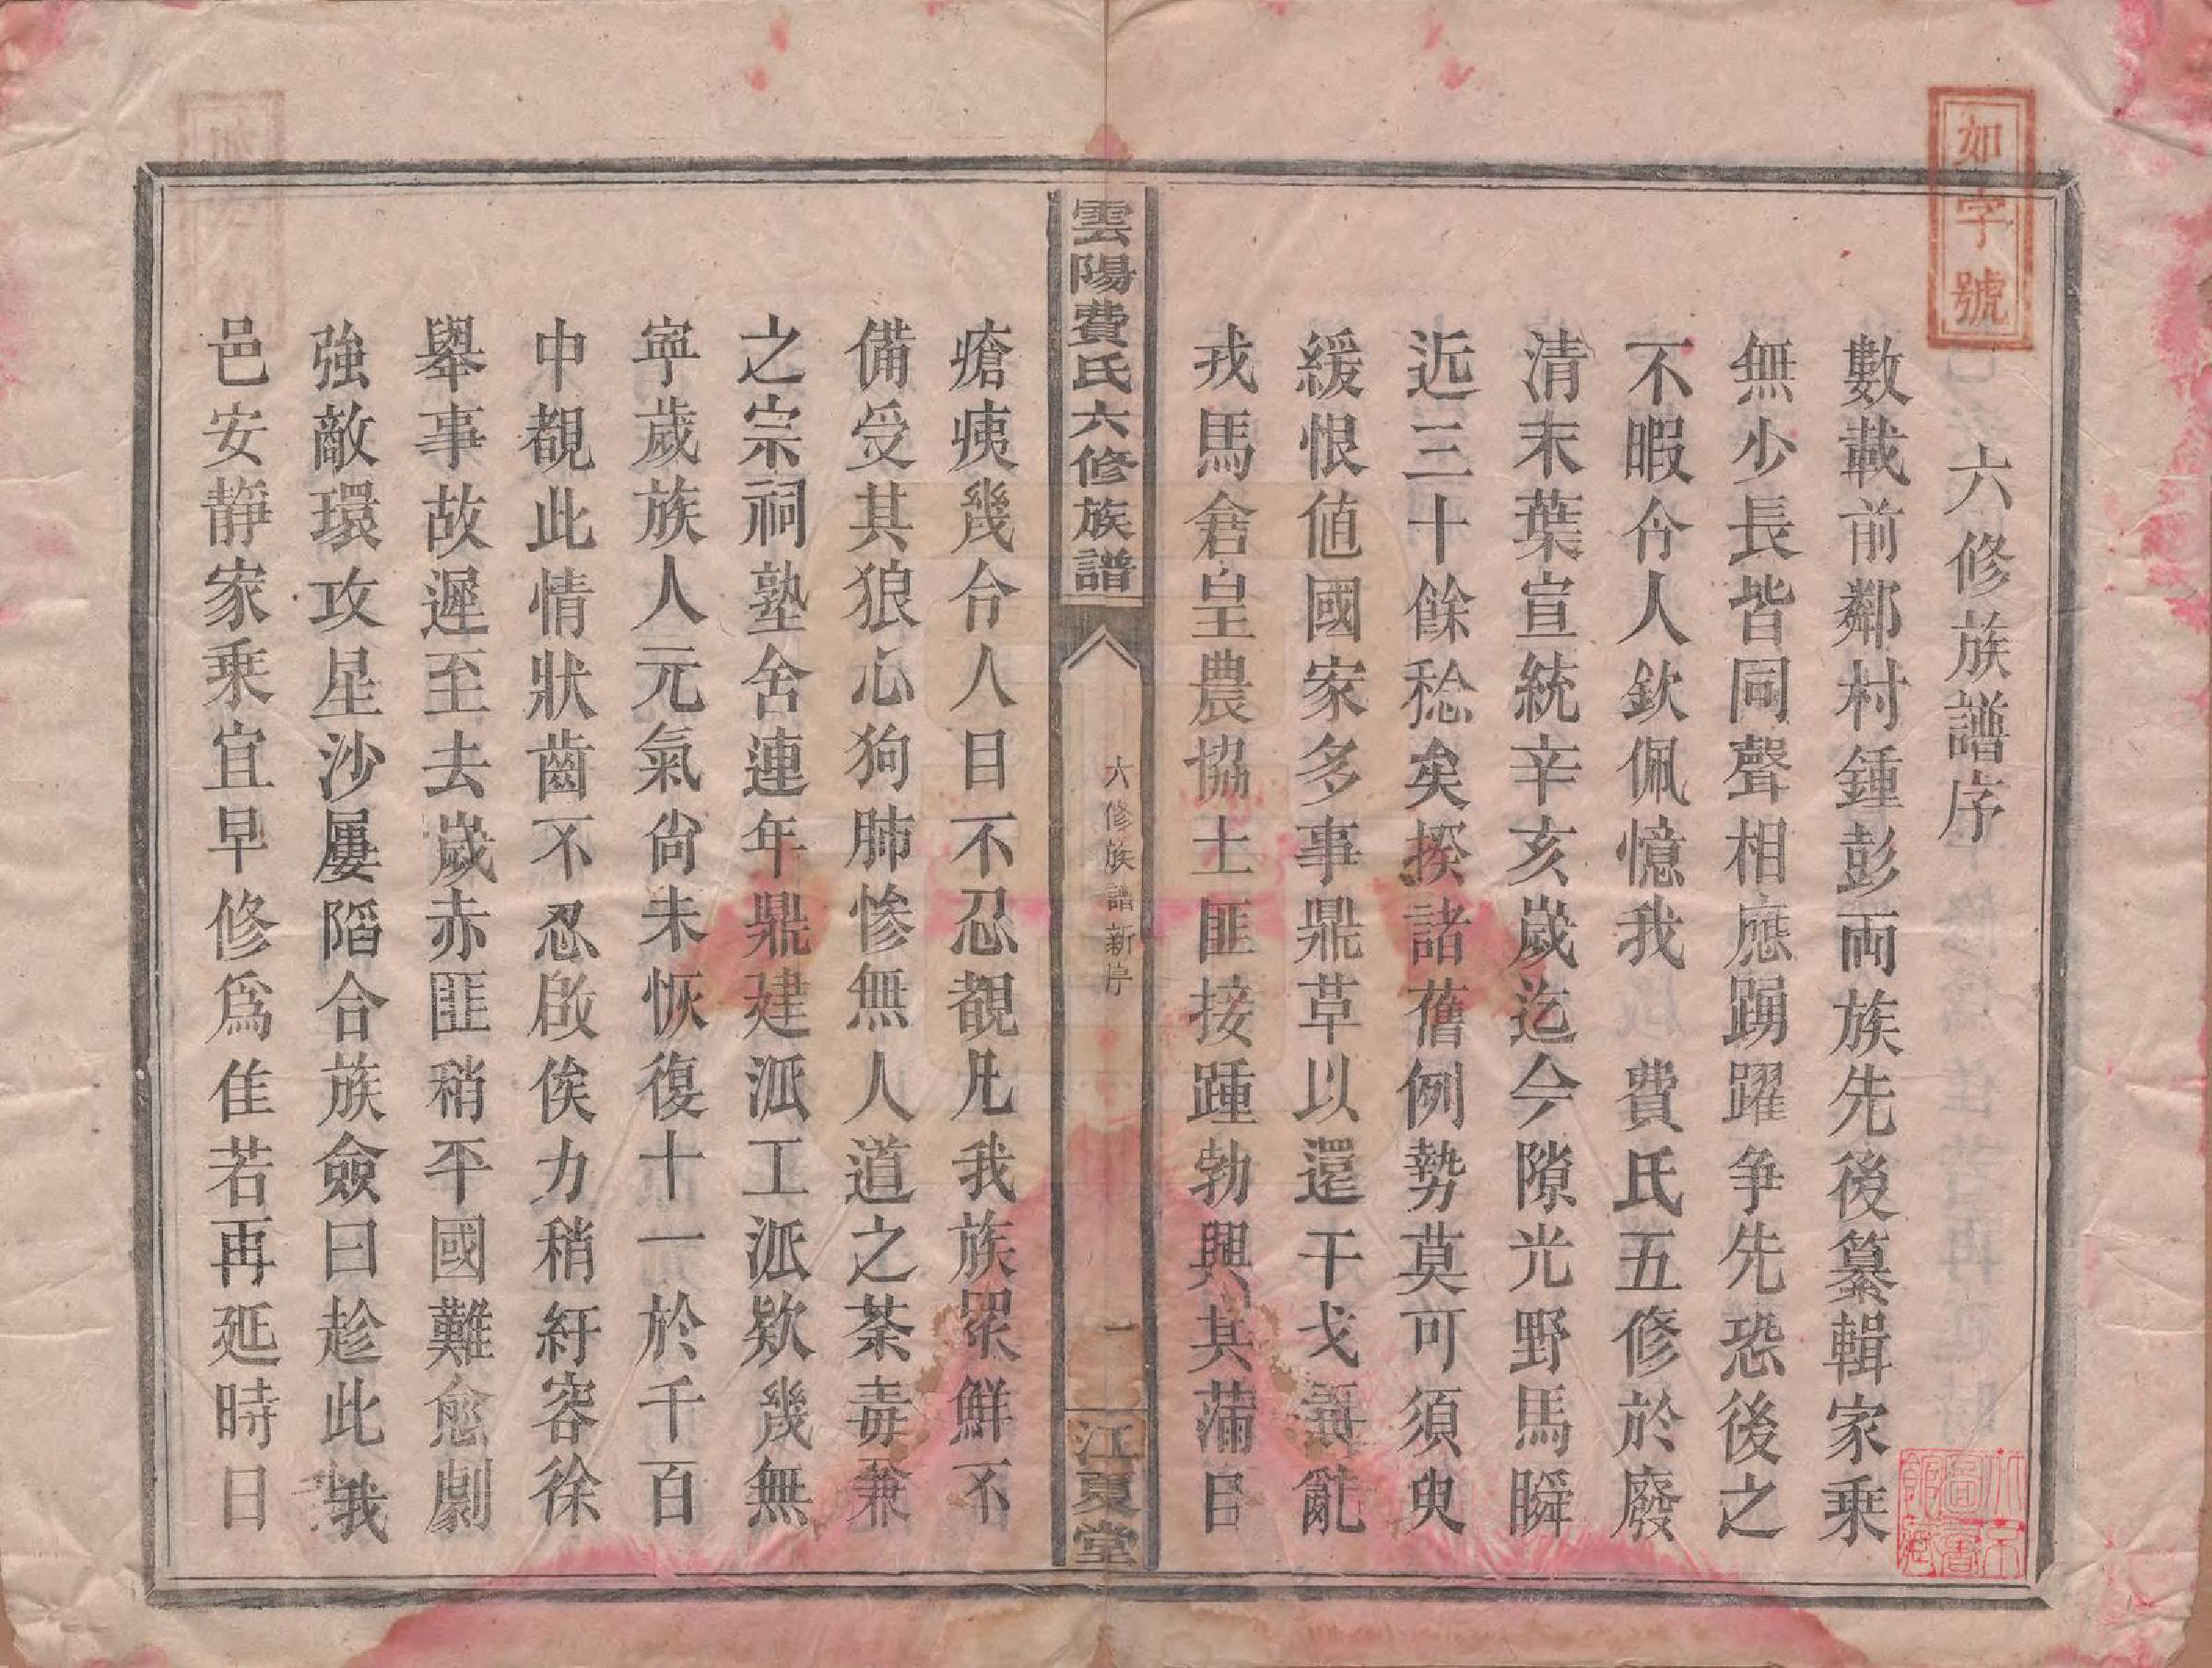 如字號
六修族譜序
數載前鄰村鍾彭兩族先後纂輯家乘
無少長皆同聲相應踴躍争先恐後之
不暇令人欽佩憶我 費氏五修於廢
清末葉宣統辛亥歲迄今隙光野馬瞬
近三十餘稔矣揆諸舊例勢莫可須臾
緩恨値國家多事鼎革以還干戈擾亂
戎馬倉皇農協土匪接踵勃興其滿目
雲陽費氏六修族譜
六修族譜新序
一
江夏堂
瘡痍幾令人目不忍覩凡我族眾鮮不
備受其狼心狗肺慘無人道之荼毒兼
之宗祠塾舍連年鼎建派工派欵幾無
寜歲族人元氣尙未恢復十一於千百
中覩此情狀齒不忍啟俟力稍紓容徐
舉事故遲至去歲赤匪稍平國難愈劇
強敵環攻星沙屢陷合族僉曰趁此我
邑安靜家乘宜早修爲佳若再延時日